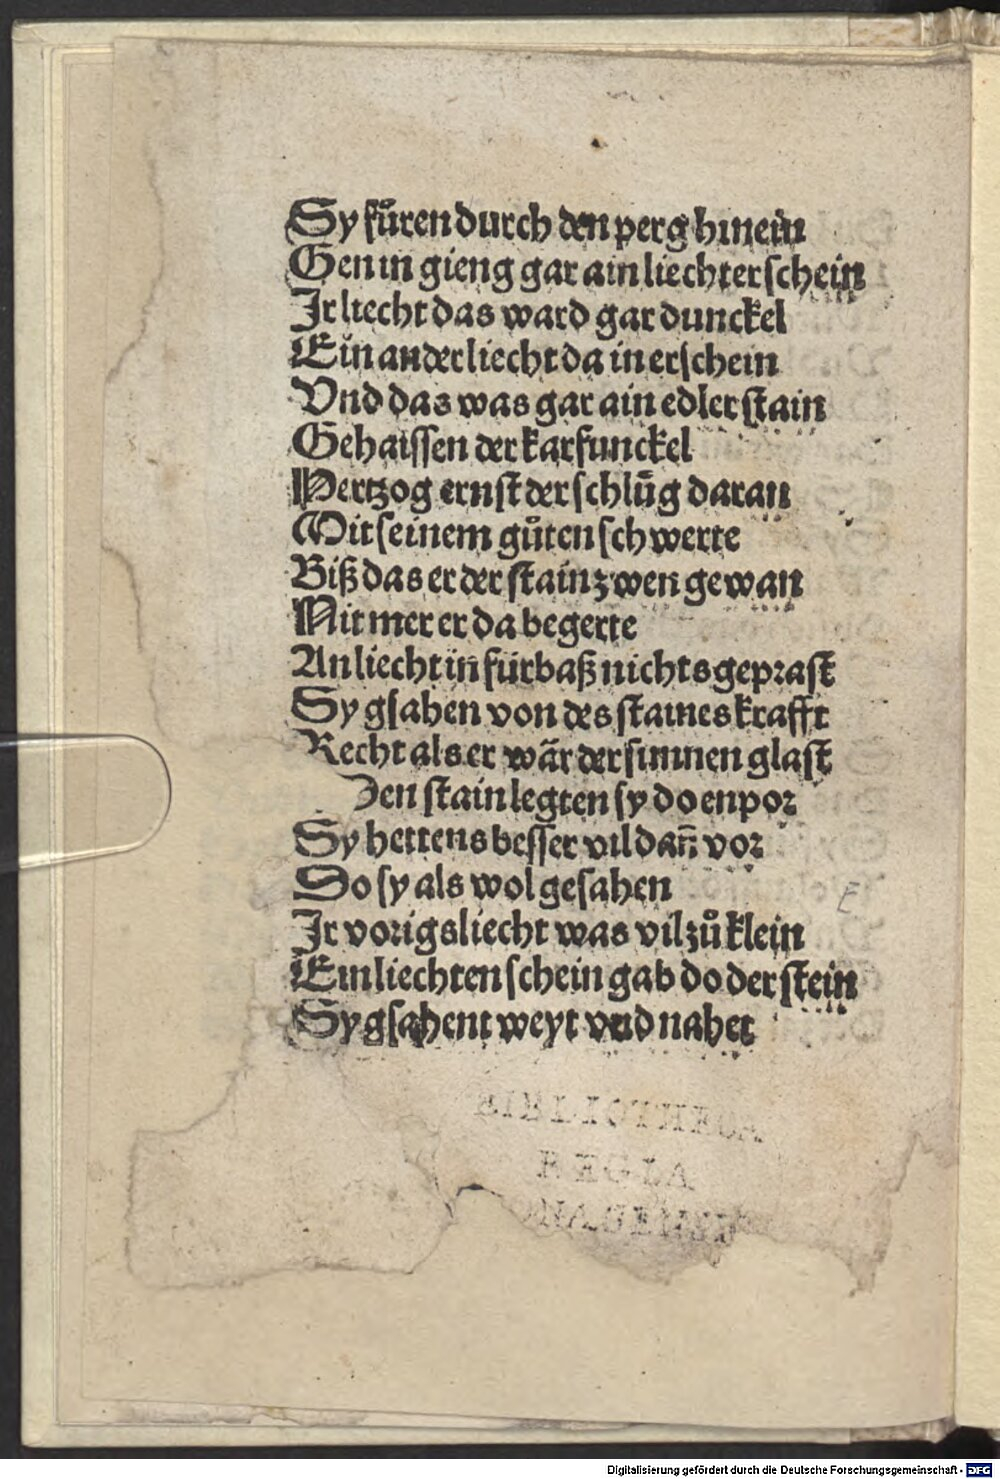 Sy fůren durch den perg hinein
Gen in gieng gar ain liechter schein
Jr liecht das ward gar dunckel
Ein ander liecht da in erschein
Vnd das was gar ain edler stain
Gehaissen der karfunckel
Hertzog ernst der schlůg daran
Mit seinem gůten schwerte
Biß das er der stain zwen gewan
Nit mer er da begerte
An liecht in fürbaß nichts geprast
Sy gsahen von des staines krafft
Recht als er wär der sunnen glast
Den stain legten sy do enpor
Sy hettens besser vil dañ vor
Do sy als wol gesahen
Jr vorigs liecht was vil zů klein
Ein liechten schein gab do der stein
Sy gsahent weyt vnd naher
E
Digitalisierung gefördert durch die Deutsche Forschungsgemeinschaft - DFG